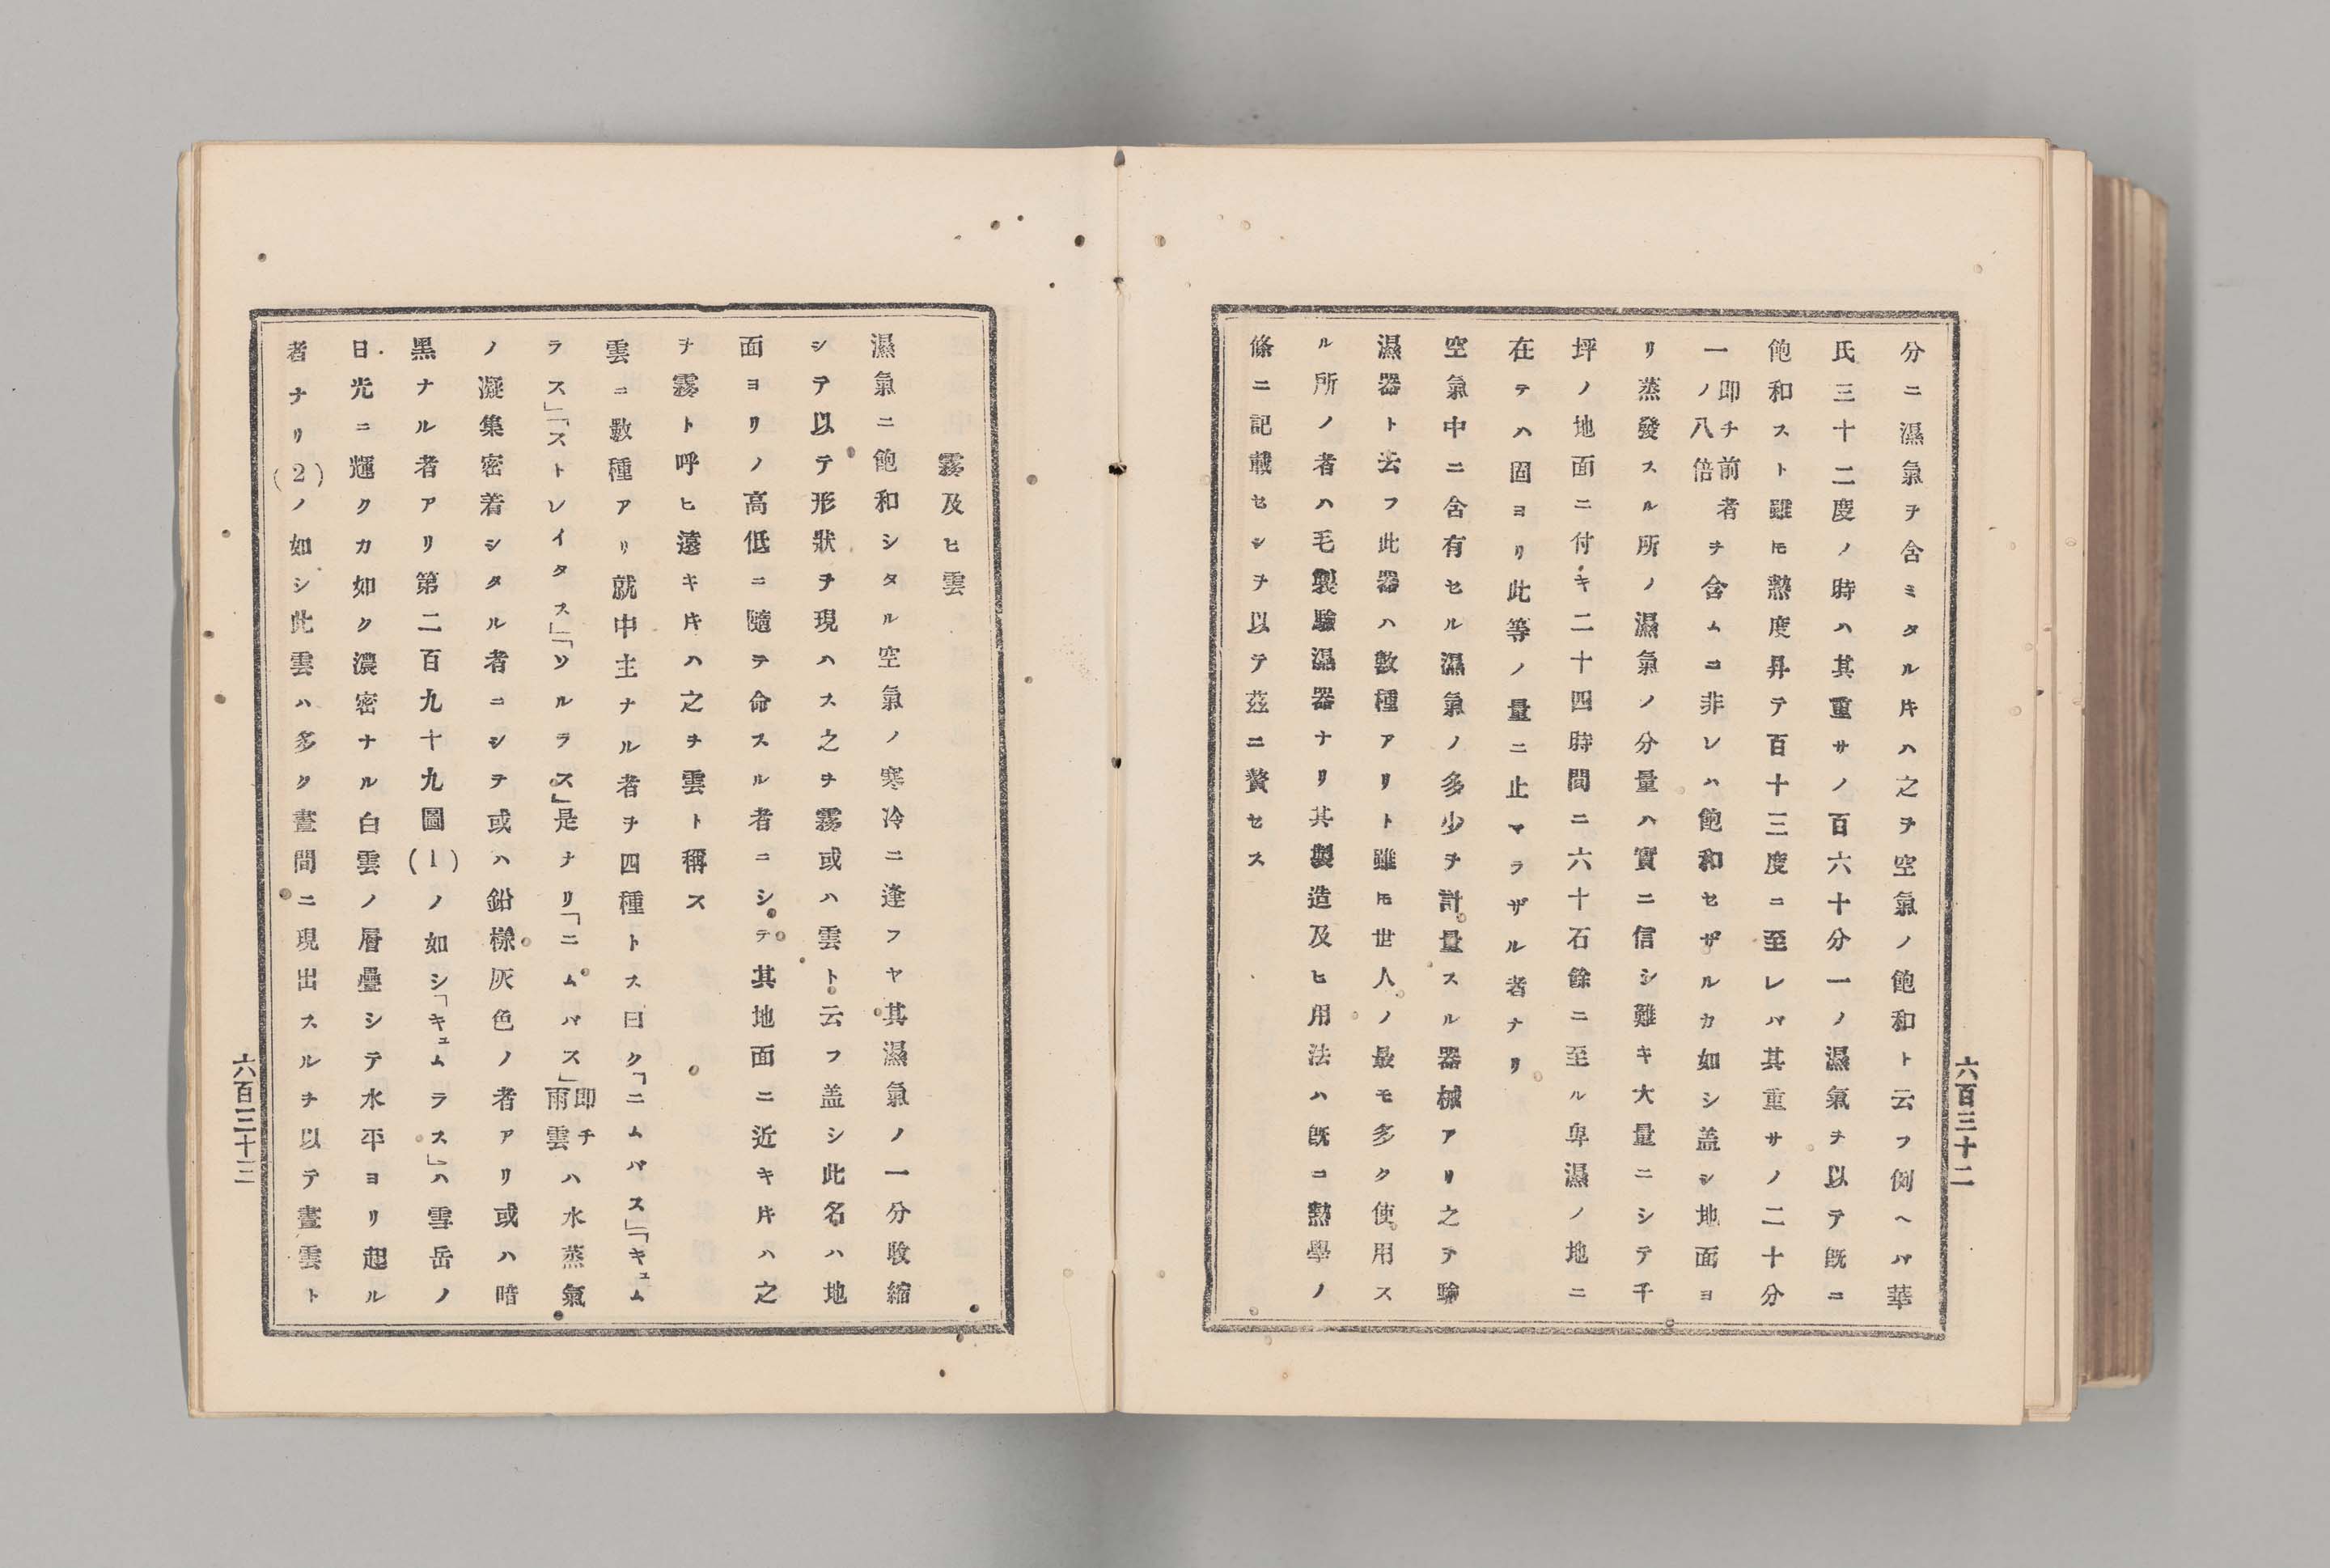 分ニ濕氣ヲ含ミタル𪜈ハ之ヲ空氣ノ飽和ト云フ例ヘバ華
氏三十二度ノ時ハ其重サノ百六十分一ノ濕氣ヲ以テ既ニ
飽和スト雖𪜈熱度昇テ百十三度ニ至レバ其重サノ二十分
一即チ前ノ八倍者ヲ含ムヿ非レハ飽和セザルカ如シ盖シ地面ヨ
リ蒸發スル所ノ濕氣ノ分量ハ實ニ信シ難キ大量ニシテ千
坪ノ地面ニ付キ二十四時間ニ六十石餘ニ至ル卑濕ノ地ニ
在テハ固ヨリ此等ノ量ニ止マラザル者ナリ
空氣中ニ含有セル濕氣ノ多少ヲ計量スル器械アリ之ヲ驗
濕器ト云フ此器ハ數種アリト雖𪜈世人ノ最モ多ク使用ス
ル所ノ者ハ毛製驗濕器ナリ其製造及ヒ用法ハ既ニ熱學ノ
條ニ記載セシヲ以テ茲ニ贅セス
六百三十二
霧及ヒ雲
濕氣ニ飽和シタル空氣ノ寒冷ニ逢フヤ其濕氣ノ一分收縮
シテ以テ形狀ヲ現ハス之ヲ霧或ハ雲ト云フ盖シ此名ハ地
面ヨリノ高低ニ隨テ命スル者ニシテ其地面ニ近キ𪜈ハ之
ヲ霧ト呼ヒ遠キ𪜈ハ之ヲ雲ト稱ス
雲ニ數種アリ就中主ナル者ヲ四種トス曰ク「ニムバス」「キュム
ラス」「ストレイタス」「シルラス」是ナリ「ニムバス」即チ雨雲ハ水蒸氣
ノ凝集密着シタル者ニシテ或ハ鉛樣灰色ノ者アリ或ハ暗
黑ナル者アリ第二百九十九圖(1)ノ如シ「キュムラス」ハ雪岳ノ
日光ニ輝クカ如ク濃密ナル白雲ノ層疊シテ水平ヨリ起ル
者ナリ(2)ノ如シ此雲ハ多ク晝間ニ現出スルヲ以テ晝雲ト
六百三十三